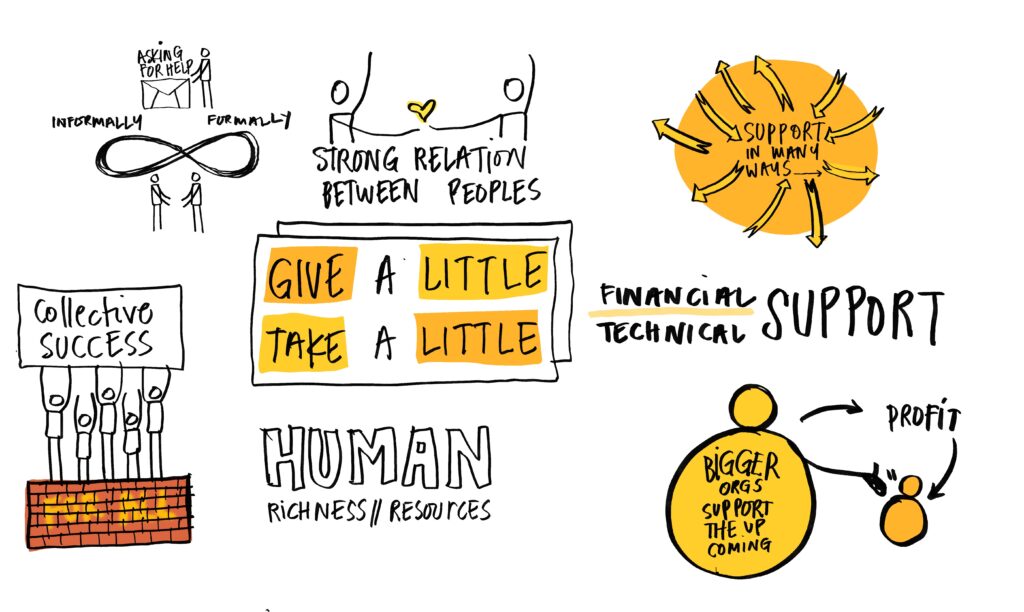 ASKING
FOR HELP
INFORMALLY
FORMALLY
STRONG RELATION
BETWEEN PEOPLES
SUPPORT
IN MANY
WAYS
GIVE A LITTLE
TAKE A LITTLE
Collective
SUCCESS
FINANCIAL
TECHNICAL
SUPPORT
HUMAN
RICHNESS//RESOURCES
BIGGER
ORGS
SUPPORT
THE UP
COMING
PROFIT